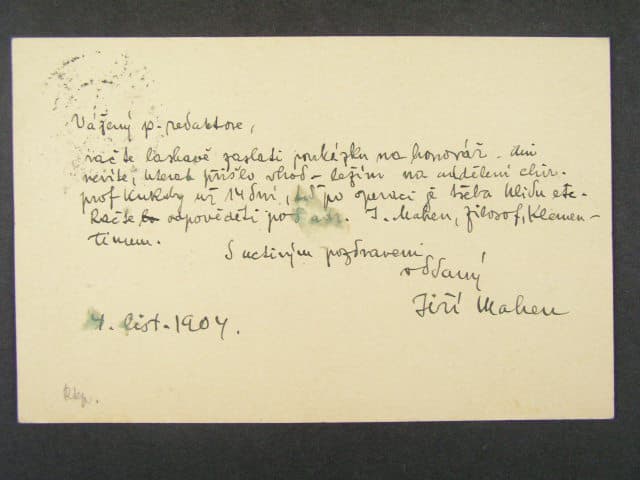 Vážený p. redaktore,
račte laskavě zaslati poukázku na honorář - ani
nevíte, kterak přišlo vhod - ležím na oddělení chir.
prof. Kukuly už 14 dní, po operaci je třeba klidu etc.
Račte odpověděti pod adr. J. Mahen, filosof, Klemen-
tinum.
S uctivým pozdravem
oddaný
Jiří Mahen
4. list. 1904.
Rkp.